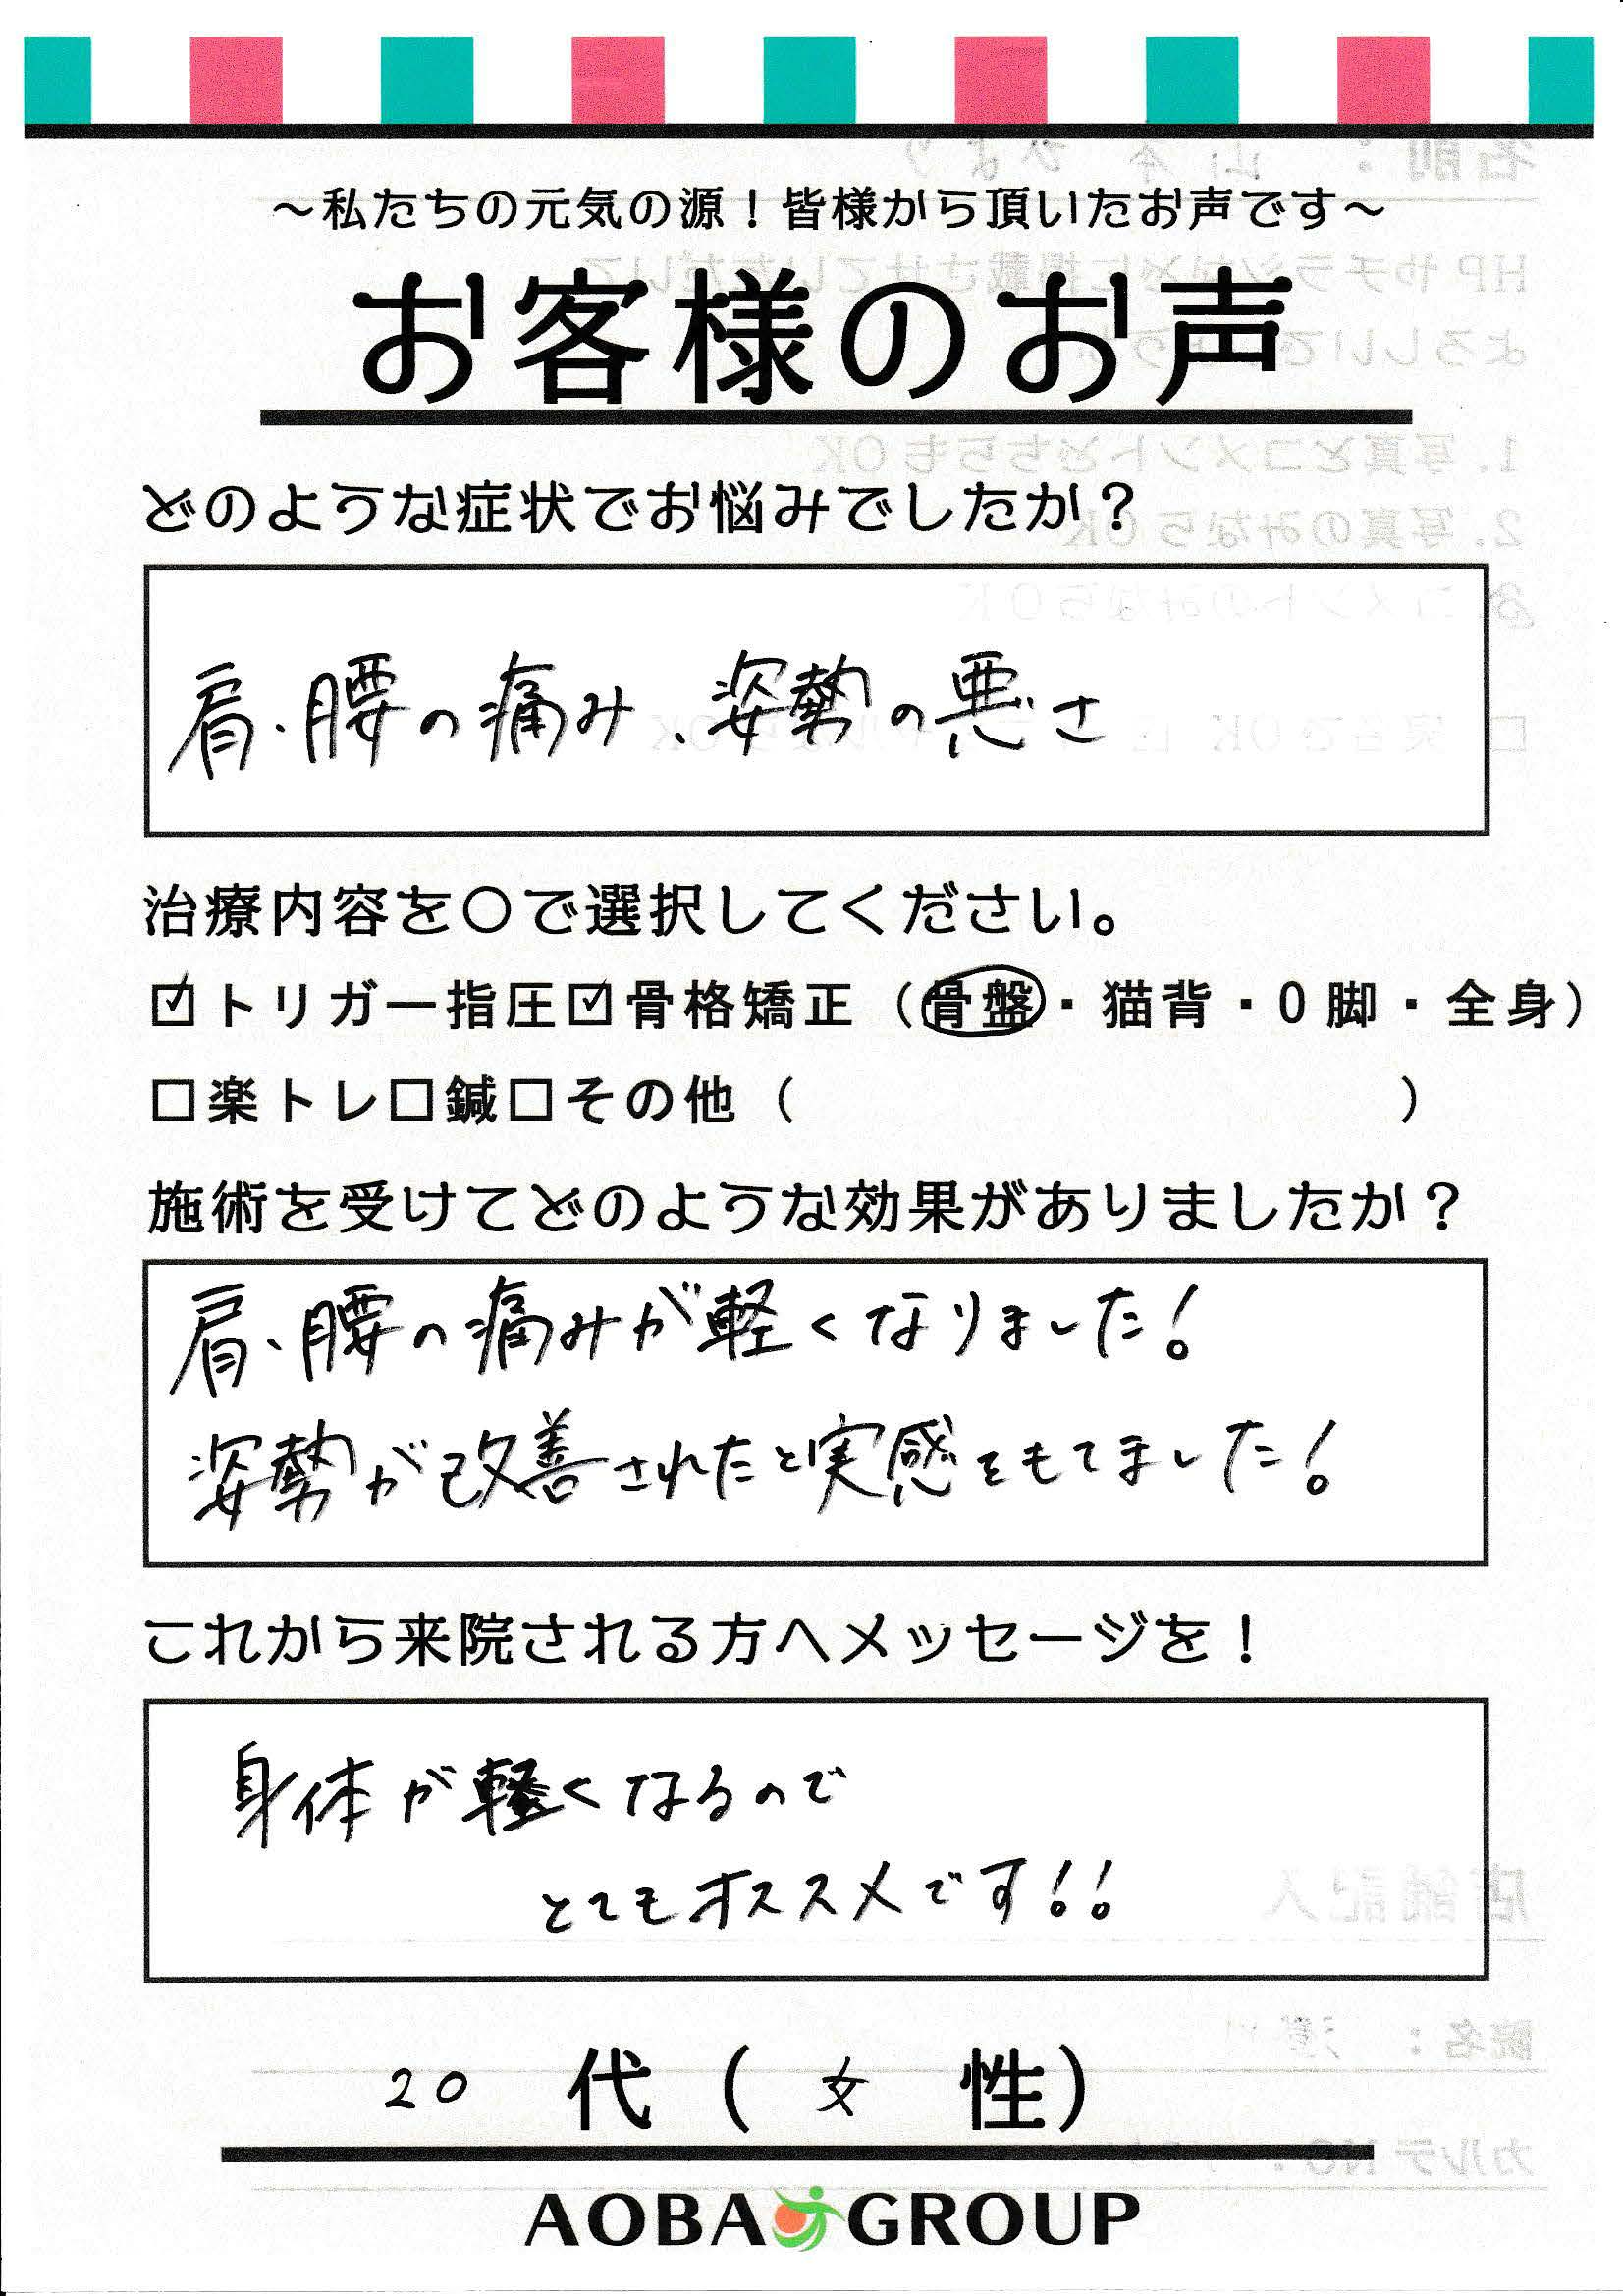 ～私たちの元気の源！皆様から頂いたお声です～
お客様のお声
どのような症状でお悩みでしたか？
肩、腰の痛み、姿勢の悪さ
治療内容を〇で選択してください。
☑トリガー指圧☑骨格矯正（骨盤・猫背・O脚・全身）
□楽トレ□鍼□その他（　　　　　　　　　　）
施術を受けてどのような効果がありましたか？
肩、腰の痛みが軽くなりました！
姿勢が改善されたと実感をもてました！
これから来院される方へメッセージを！
身体が軽くなるので
とてもオススメです！！
20 代（ 女 性）
AOBA GROUP